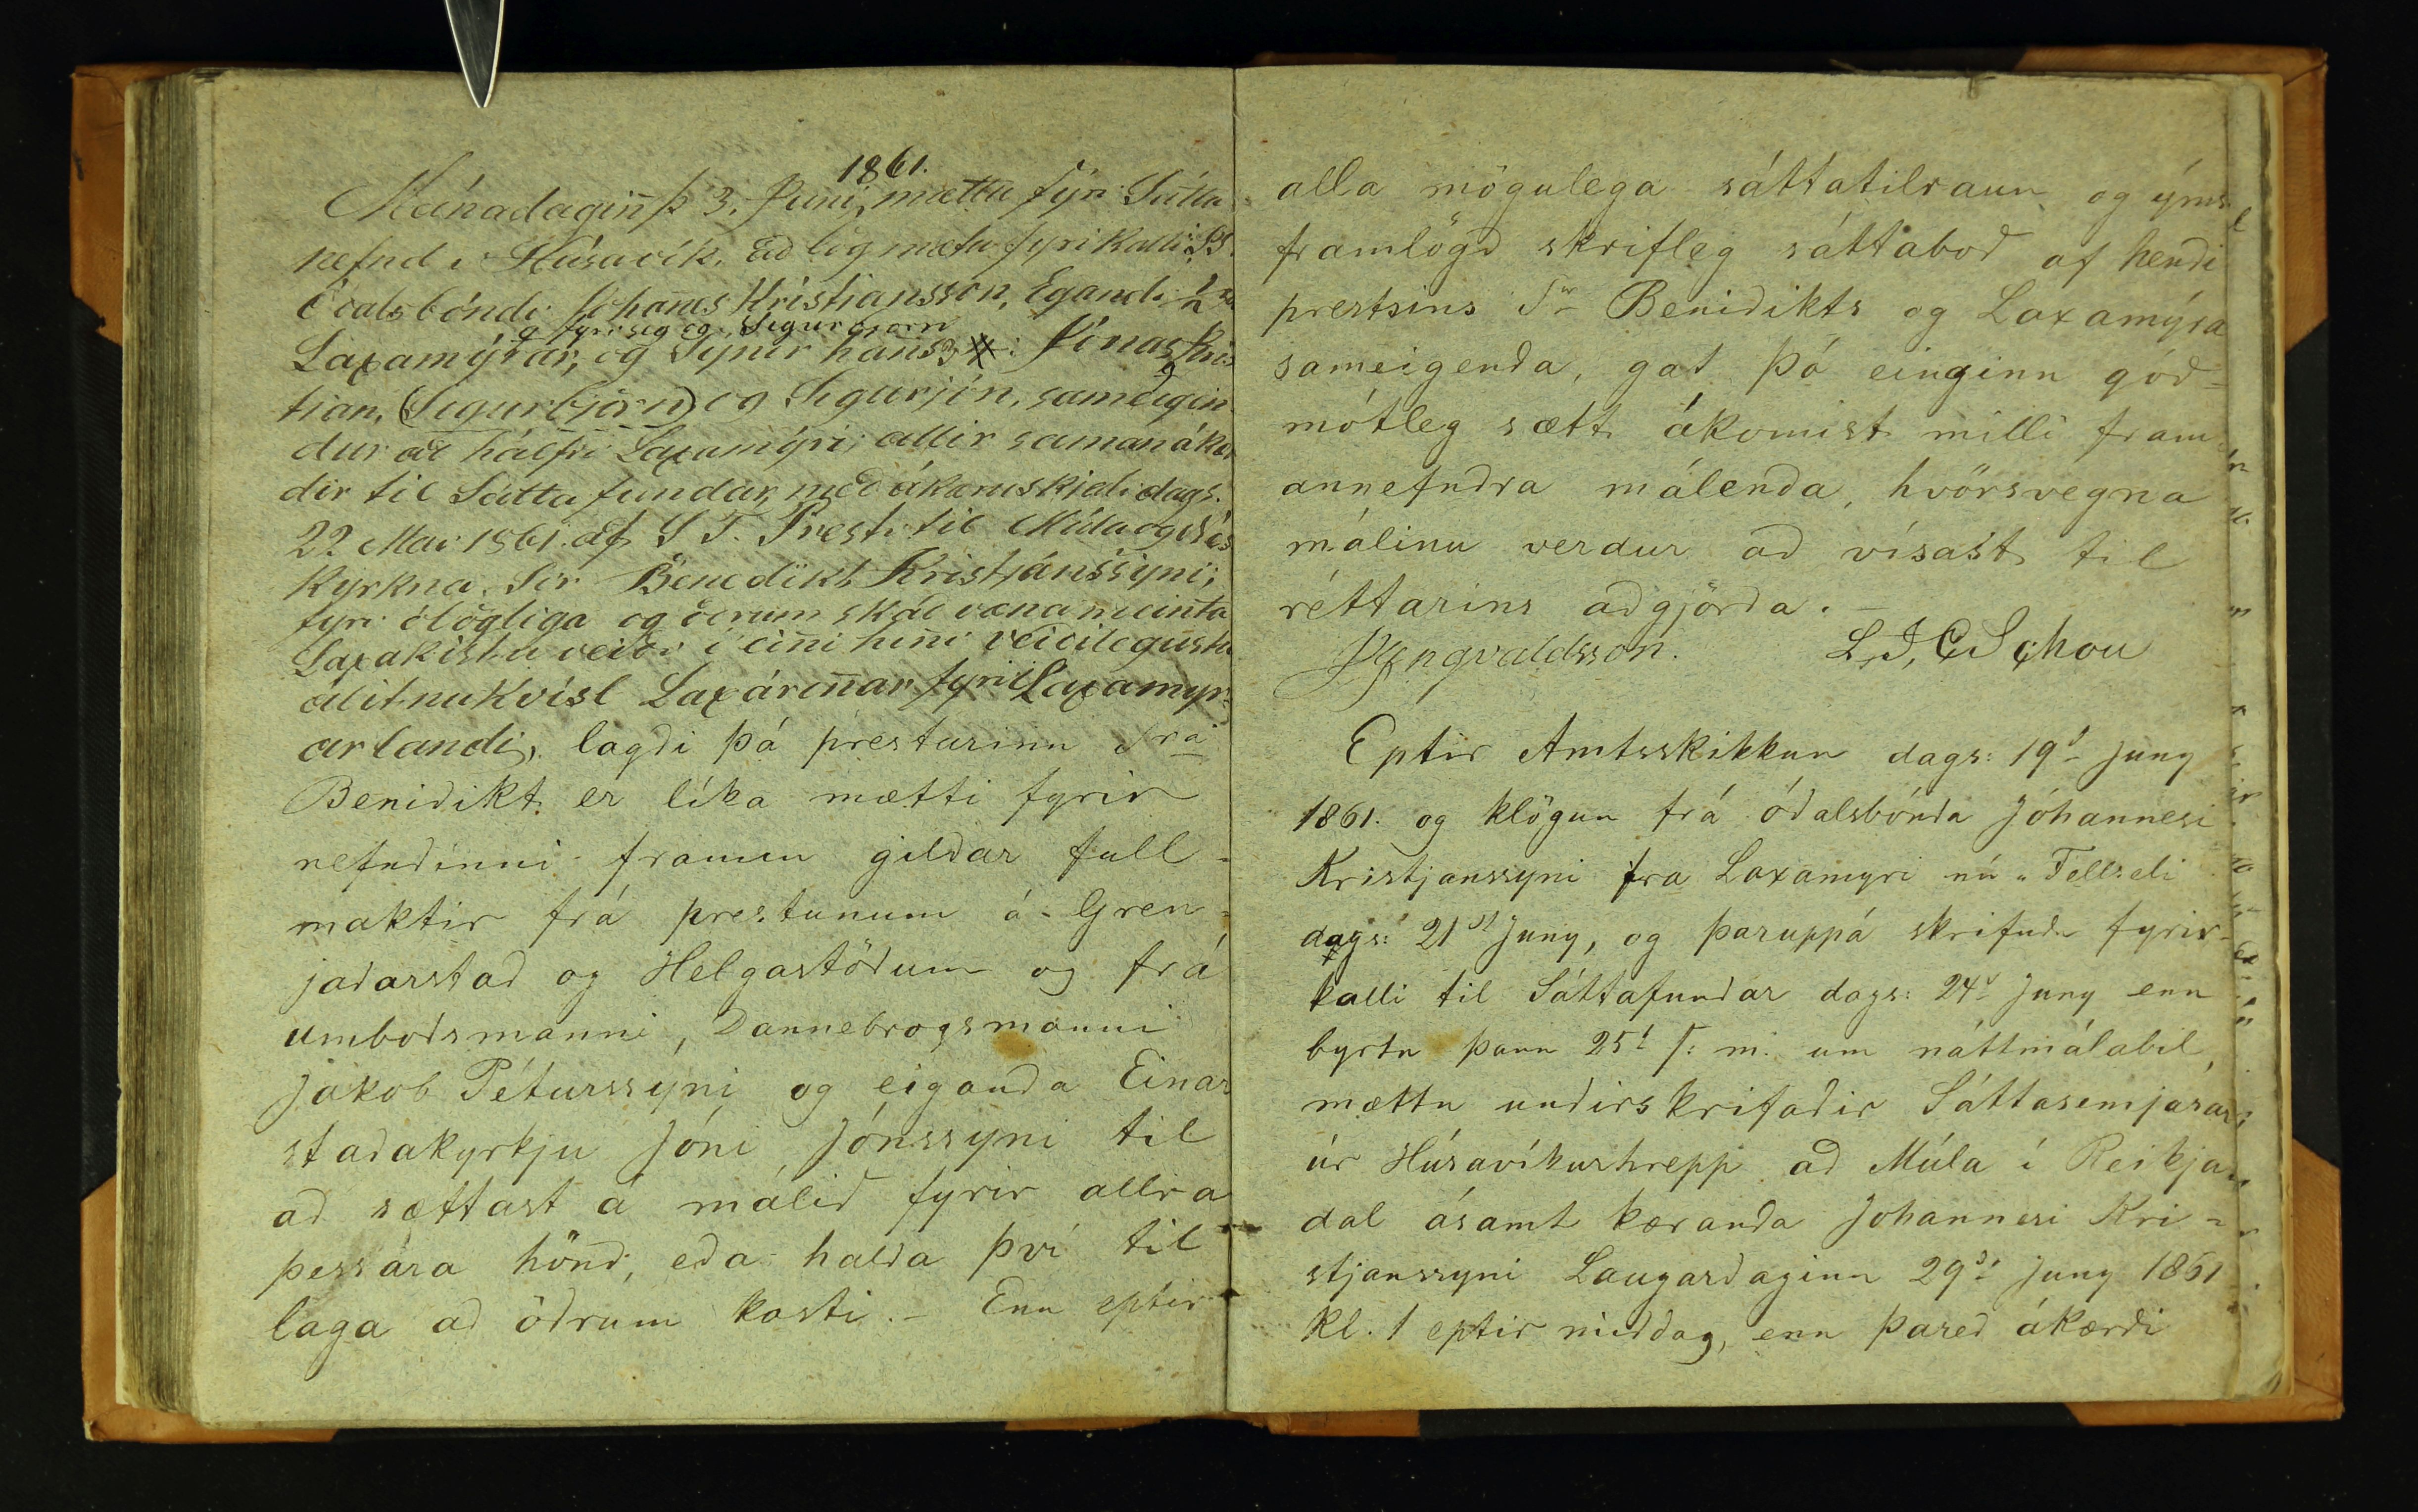 1861.
Mánadagiñ þ 3. Juni, mættu fyri Sátta
nefnd i Húsavík, ad lögmætu fyrikalli
óðalsbóndi Johañes Kristjansson, Egandi ½
og fyri sig og Sigurbjörn
Laxamýrar, og Synir hañs 3: Jónas, Kris
tian, (Sigurbjörn) og Sigurjón, sameigin
dur að hálfri Laxamýri, allir saman ákær
dir til Sáttafundar, með ákæruskjali dags.
22 Mai 1861. af S T. Presti til Múla og Nes
Kyrkna. Sir Benedikt Kristjánssyni;
fyri ólögliga og öðrum skaðvæna meinta
Laxakistu veiði i eiñi hiñi veiðilegustu
alitnu Kvísl Laxáriñar fyri Laxamyr-
arlandi, lagdi þá presturinn Sra
Benidikt er líka mætti fyrir
nefndinni framm gildar full-
maktir frá prestunum á Gren-
jadarstad og Helgastödum og frá
umbodsmanni, Dannebrogsmanni
Jakob Péturssyni og eiganda Einar
stadakyrkju Jóni Jónssyni til
ad sættast á málid fyrir allra
þessara hönd, eda halda því til
laga ad ödrum kosti. – Enn eptir
alla mögulega sáttatilraun og ýms
framlögd skrifleg sáttabod af hendi
prestsins Sr Benidikts og Laxamýra
sameigenda, gat þó einginn gód-
mótleg sætt ákomist milli fram
annefndra málenda, hvörsvegna
málinu verdur ad vísast til
réttarins adgjörda. –
JYngvaldsson. L.J.C. Schou
Eptir Amtsskikkun dags: 19d Juny
1861. og klögun frá ódalsbónda Jóhannesi
Kristjanssyni fra Laxamyri nú " Fellseli
dags: 21st Juny, og þaruppá skrifudu fyrir-
kalli til Sáttafundar dags: 24d Juny enn
byrtu þann 25d s: m. um náttmálabil,
mættu undirskrifadir Sáttasemjarar
úr Húsavíkurhrepp ad Múla í Reikja
dal ásamt kæranda Johannesi Kri-
stjanssyni Laugardaginn 29d Juny 1861
kl. 1 eptir middag, enn þared ákærdi